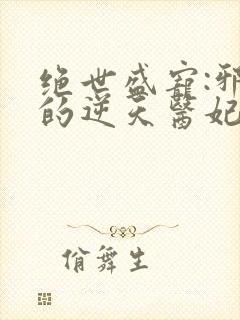 绝世盛宠:邪
的逆天医妃
俏舞生